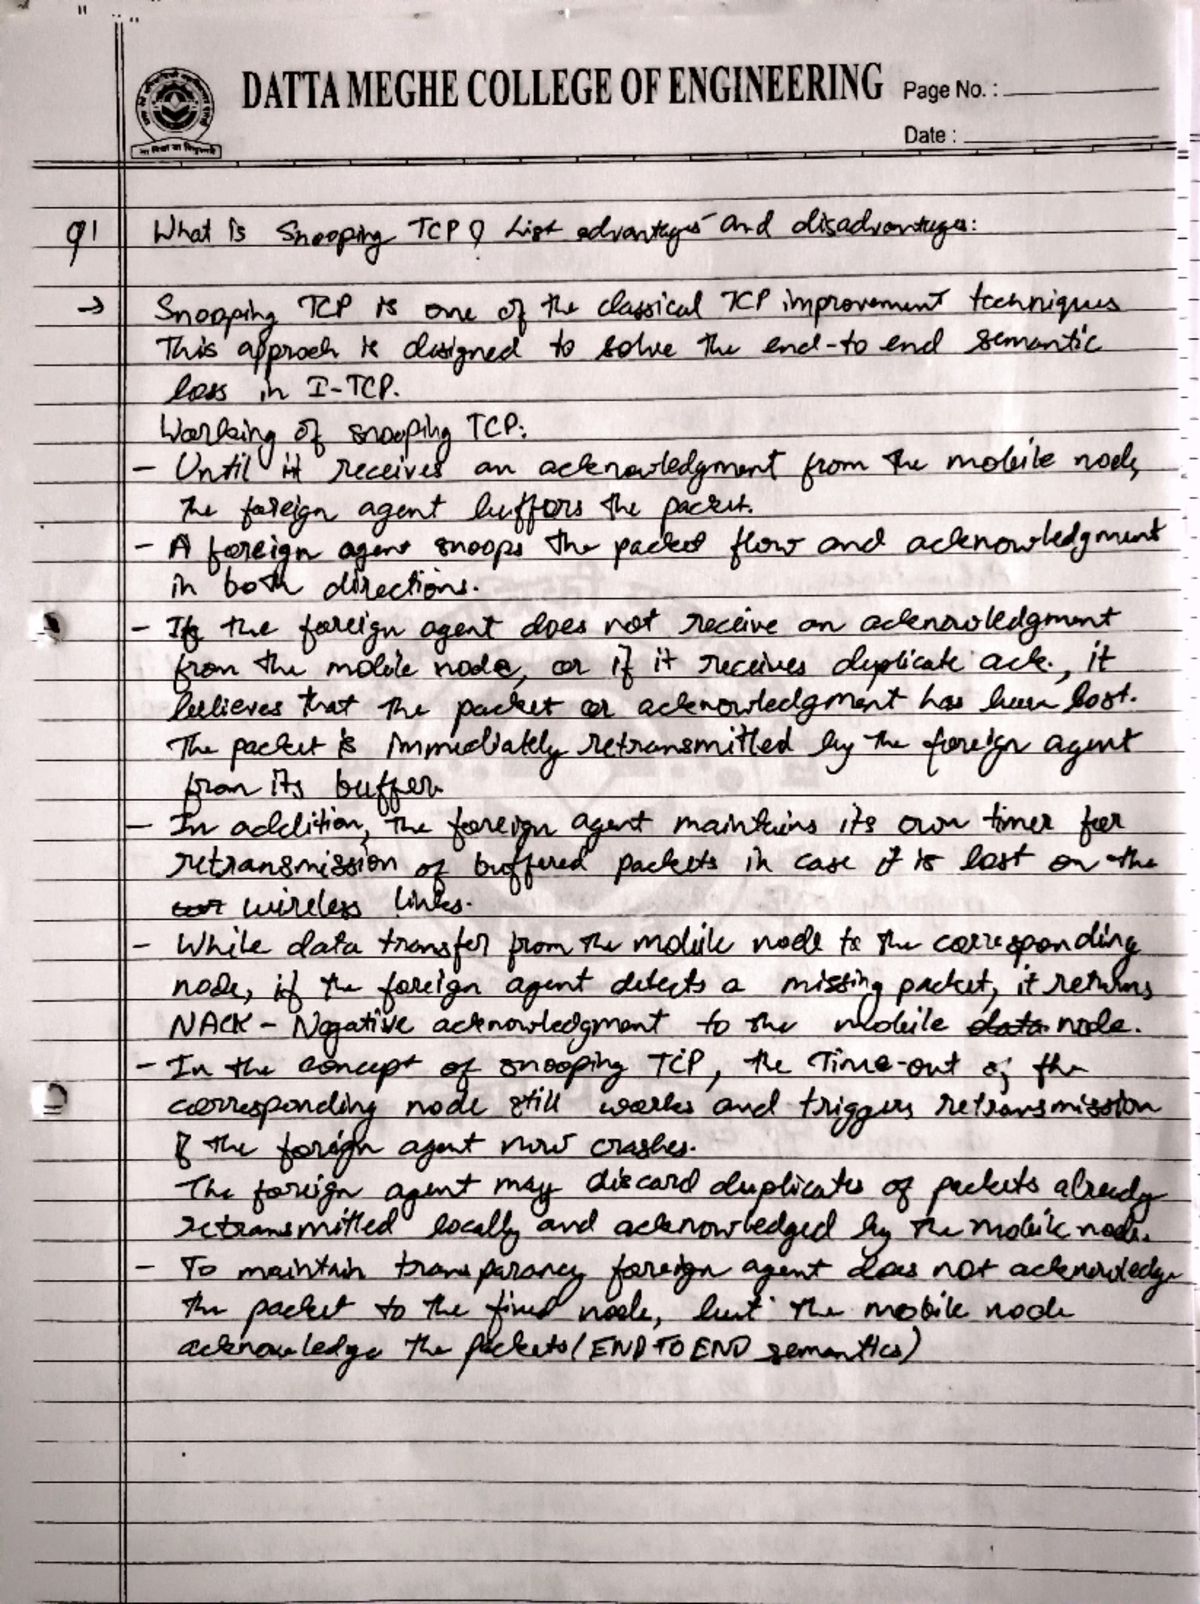 DATTA MEGHE COLLEGE OF ENGINEERING
Page No. :
Date :
Q1 What is Snooping TCP? List advantages and disadvantages:
→ Snooping TCP is one of the classical TCP improvement techniques
This approch is designed to solve the end-to end semantic
loss in I-TCP.
Working of snooping TCP:
- Until it receives an acknowledgment from the mobile node,
the foreign agent buffors the packet.
- A foreign agent snoops the packet flow and acknowledgment
in both directions.
- If the foreign agent does not receive an acknowledgment
from the mobile node, or if it receives duplicate ack., it
believes that the packet or acknowledgment has been lost.
The packet is immediately retransmitted by the foreign agent
from its buffer.
- In addition, the foreign agent maintains its own timer for
retransmission of buffered packets in case it is lost on the
wireless links.
- While data transfer from the mobile node to the corresponding
node, if the foreign agent detects a missing packet, it returns
NACK - Negative acknowledgment to the mobile data node.
- In the concept of snooping TCP, the Time-out of the
corresponding node still works and triggers retransmission
if the foreign agent now crashes.
The foreign agent may discard duplicates of packets already
retransmitted locally and acknowledged by the mobile node.
- To maintain transparancy foreign agent does not acknowledge
the packet to the fixed node, but the mobile node
acknowledge the packets (END TO END semantics)